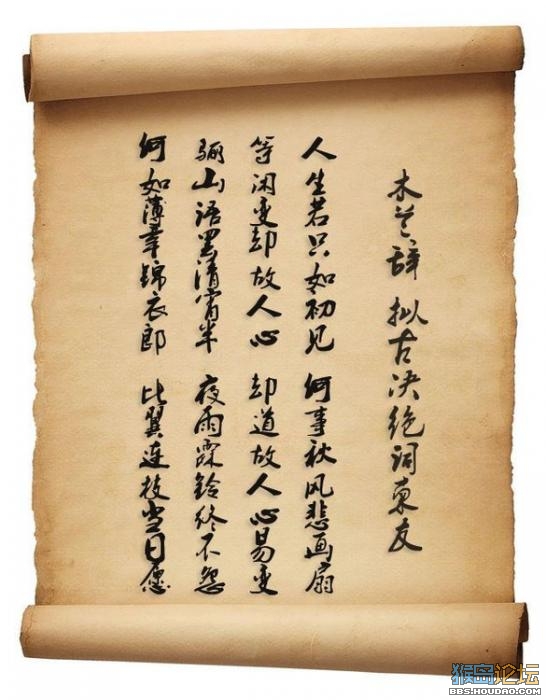 木兰辞 拟古决绝词柬友
人生若只如初见 何事秋风悲画扇
等闲变却故人心 却道故人心易变
骊山语罢清宵半 夜雨霖铃终不怨
何如薄幸锦衣郎 比翼连枝当日愿
猴岛论坛
BBS.HOUDAO.COM